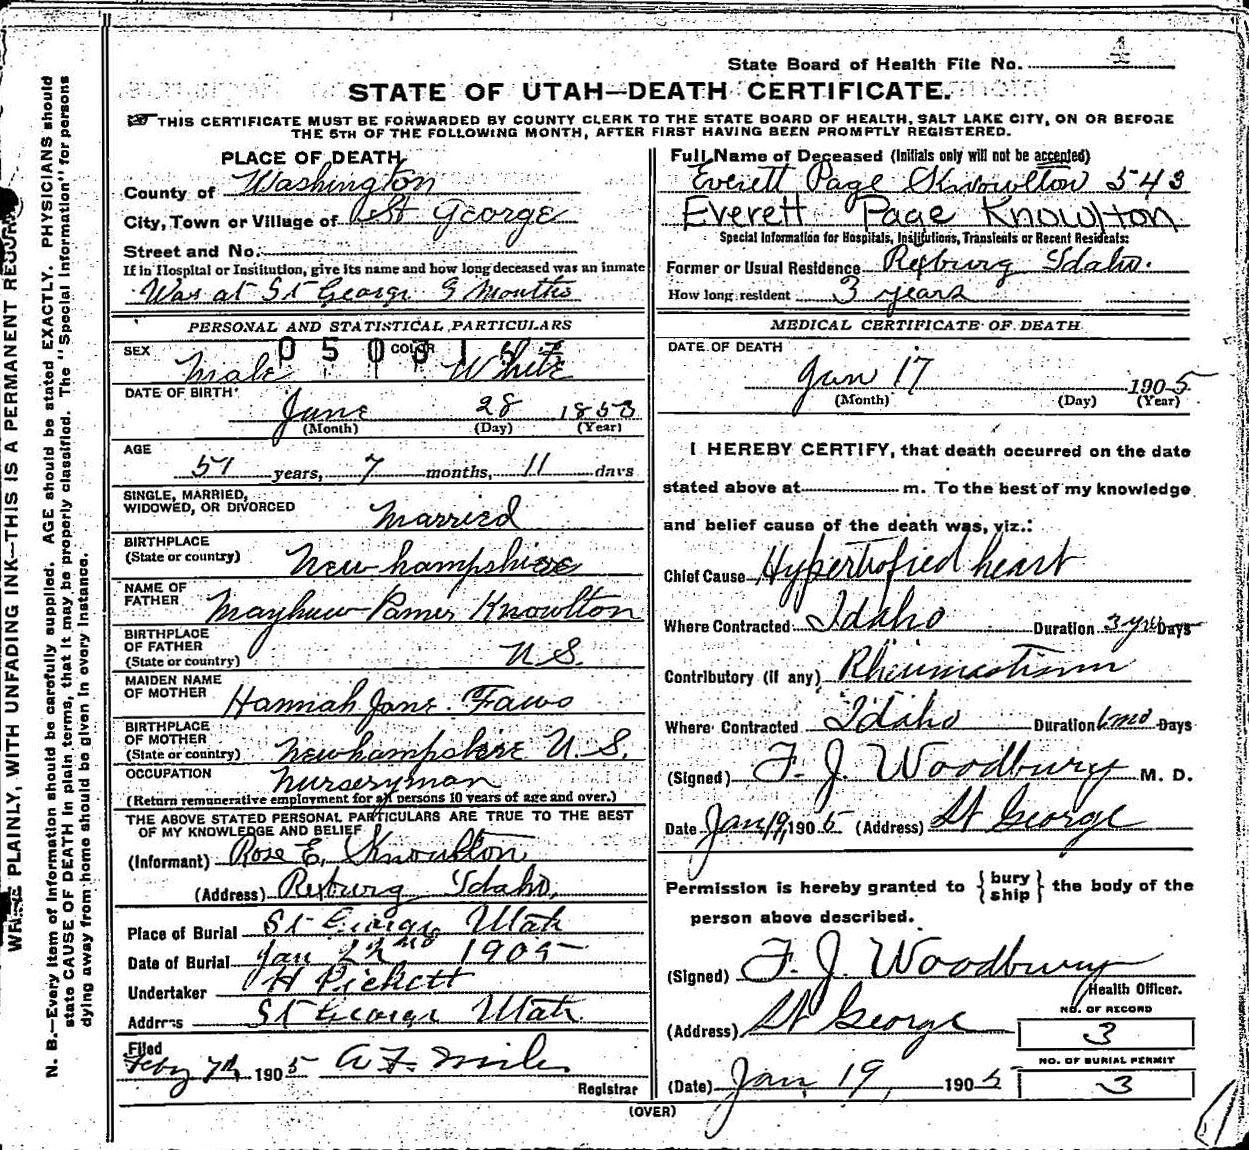 State Board of Health File No.
STATE OF UTAH—DEATH CERTIFICATE.
THIS CERTIFICATE MUST BE FORWARDED BY COUNTY CLERK TO THE STATE BOARD OF HEALTH, SALT LAKE CITY, ON OR BEFORE
THE 5TH OF THE FOLLOWING MONTH, AFTER FIRST HAVING BEEN PROMPTLY REGISTERED.
PLACE OF DEATH
County of Washington
City, Town or Village of St George
Street and No.
If in Hospital or Institution, give its name and how long deceased was an inmate
Was at St George 9 Months
PERSONAL AND STATISTICAL PARTICULARS
SEX Male COLOR White
DATE OF BIRTH
June 28 1853
(Month) (Day) (Year)
AGE
51 years, 7 months, 11 days
SINGLE, MARRIED,
WIDOWED, OR DIVORCED Married
BIRTHPLACE
(State or country) New hampshire
NAME OF
FATHER Knowlton
BIRTHPLACE
OF FATHER
(State or country) U.S.
MAIDEN NAME
OF MOTHER Hannah Jane
BIRTHPLACE
OF MOTHER
(State or country) Newhampshire U.S.
OCCUPATION Nurseryman
(Return remunerative employment for all persons 10 years of age and over.)
THE ABOVE STATED PERSONAL PARTICULARS ARE TRUE TO THE BEST
OF MY KNOWLEDGE AND BELIEF
(Informant) Rose E. Knowlton
(Address) Rexburg Idaho,
Place of Burial St George Utah
Date of Burial Jan 22nd 1905
Undertaker H Pickett
Address St George Utah
Filed
Feby 7th, 1905 A F. Miles
Registrar
Full Name of Deceased (Initials only will not be accepted)
Everett Page Knowlton 543
Everett Page Knowlton
Special Information for Hospitals, Institutions, Transients or Recent Residents:
Former or Usual Residence Rexburg Idaho.
How long resident 3 years
MEDICAL CERTIFICATE OF DEATH
DATE OF DEATH
Jan 17 1905
(Month) (Day) (Year)
I HEREBY CERTIFY, that death occurred on the date
stated above at m. To the best of my knowledge
and belief cause of the death was, viz.:
Chief Cause Hypertrofied heart
Where Contracted Idaho Duration 3 yrs Days
Contributory (if any) Rheumatism
Where Contracted Idaho Duration 6 mo Days
(Signed) F. J. Woodbury M. D.
Date Jan 19, 1905 (Address) St George
Permission is hereby granted to {bury ship} the body of the
person above described.
(Signed) F. J. Woodbury
Health Officer.
(Address) St George
NO. OF RECORD
3
NO. OF BURIAL PERMIT
(Date) Jan, 19, 1905 3
(OVER)
WRITE PLAINLY, WITH UNFADING INK—THIS IS A PERMANENT RECORD
N. B.—Every item of information should be carefully supplied. AGE should be stated EXACTLY. PHYSICIANS should
state CAUSE OF DEATH in plain terms, that it may be properly classified. The "Special Information" for persons
dying away from home should be given in every instance.